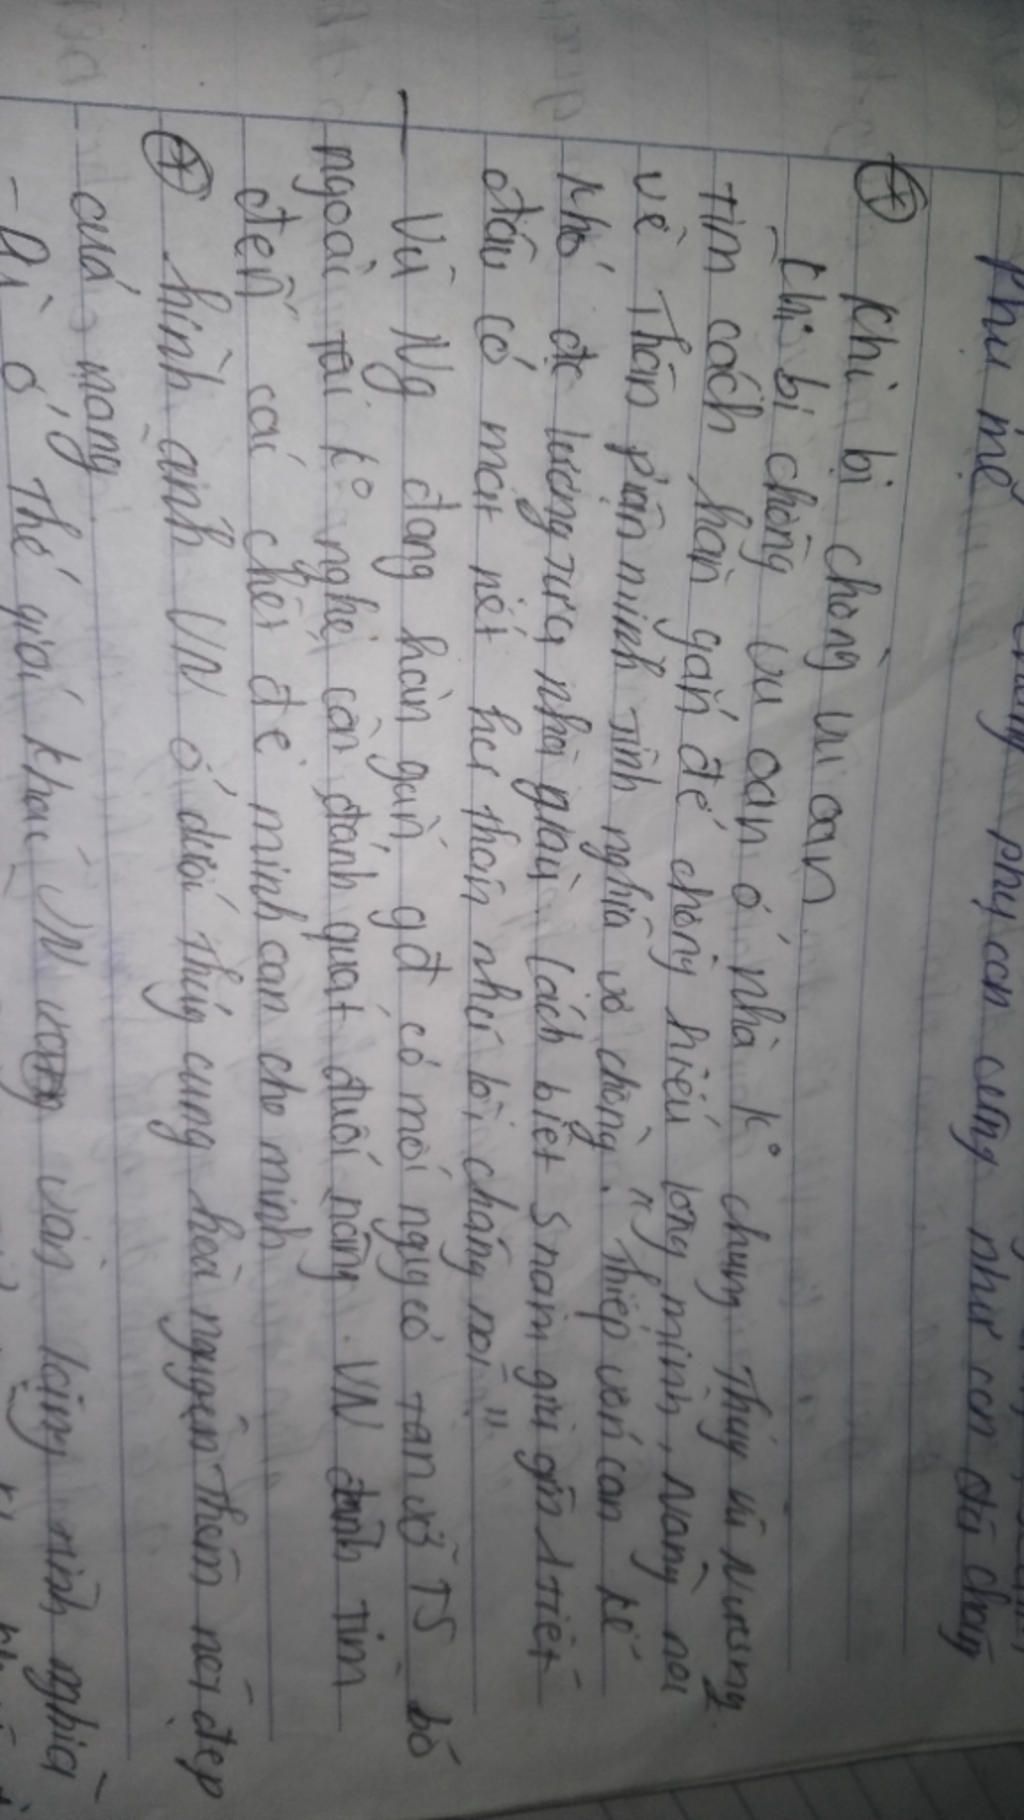 phu mẹ phụ con cũng như con đã chẳng
⊕ Khi bị chồng vu oan
Khi bị chồng vu oan ở nhà k° chung thủy vũ Nương
tìm cách hàn gắn để chồng hiểu lòng mình, nàng nói
về thân phận mình tình nghĩa vợ chồng. "Thiếp vốn con kẻ
khó đc lương tựa nhà giàu. Cách biệt 3 năm giữ gìn 1 tiết
đâu có mất nết hư thân như lời chàng nói"
Vũ Ng đang hàn gắn gđ có mối nguy cơ tan vỡ TS bỏ
ngoài tai k° nghe còn đánh quạt đuổi nàng. VN đành tìm
đến cái chết để minh oan cho mình
⊕ hình ảnh VN ở dưới thủy cung hoàn nguyện thêm nét đẹp
của nàng
- Dù ở thế giới khác VN vẫn lòng nghĩa